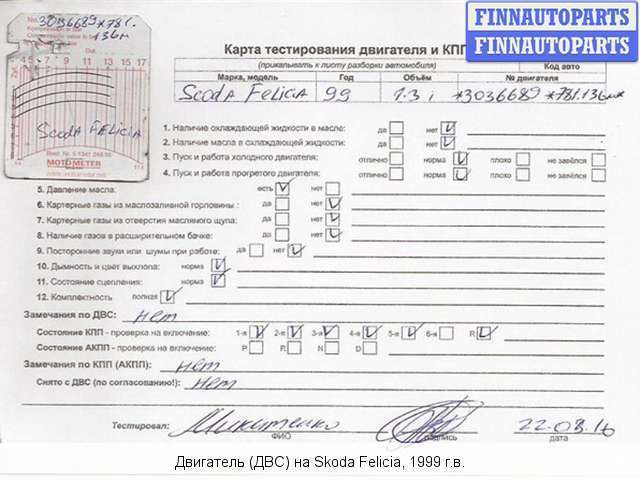 FINNAUTOPARTS
FINNAUTOPARTS
No. 3036689*781.
136м
Карта тестирования двигателя и КПП
(прикалывать к листу разборки автомобиля)
Код авто
Марка, модель Год Объём № двигателя
Scoda Felicia 99 1.3 i *3036689*781.136м*
Scoda Felicia
MOTOMETER
1. Наличие охлаждающей жидкости в масле: да нет
2. Наличие масла в охлаждающей жидкости: да нет
3. Пуск и работа холодного двигателя: отлично норма плохо не завёлся
4. Пуск и работа прогретого двигателя: отлично норма плохо не завёлся
5. Давление масла: есть нет
6. Картерные газы из маслозаливной горловины: да нет
7. Картерные газы из отверстия масляного щупа: да нет
8. Наличие газов в расширительном бачке: да нет
9. Посторонние звуки или шумы при работе: да нет
10. Дымность и цвет выхлопа: норма
11. Состояние сцепления: норма
12. Комплектность полная
Замечания по ДВС: нет
Состояние КПП - проверка на включение: 1-я 2-я 3-я 4-я 5-я 6-я R
Состояние АКПП - проверка на включение: P R N D
Замечания по КПП (АКПП): нет
Снято с ДВС (по согласованию!): нет
Тестировал: Микитенко 22.08.16
ФИО подпись дата
Двигатель (ДВС) на Skoda Felicia, 1999 г.в.